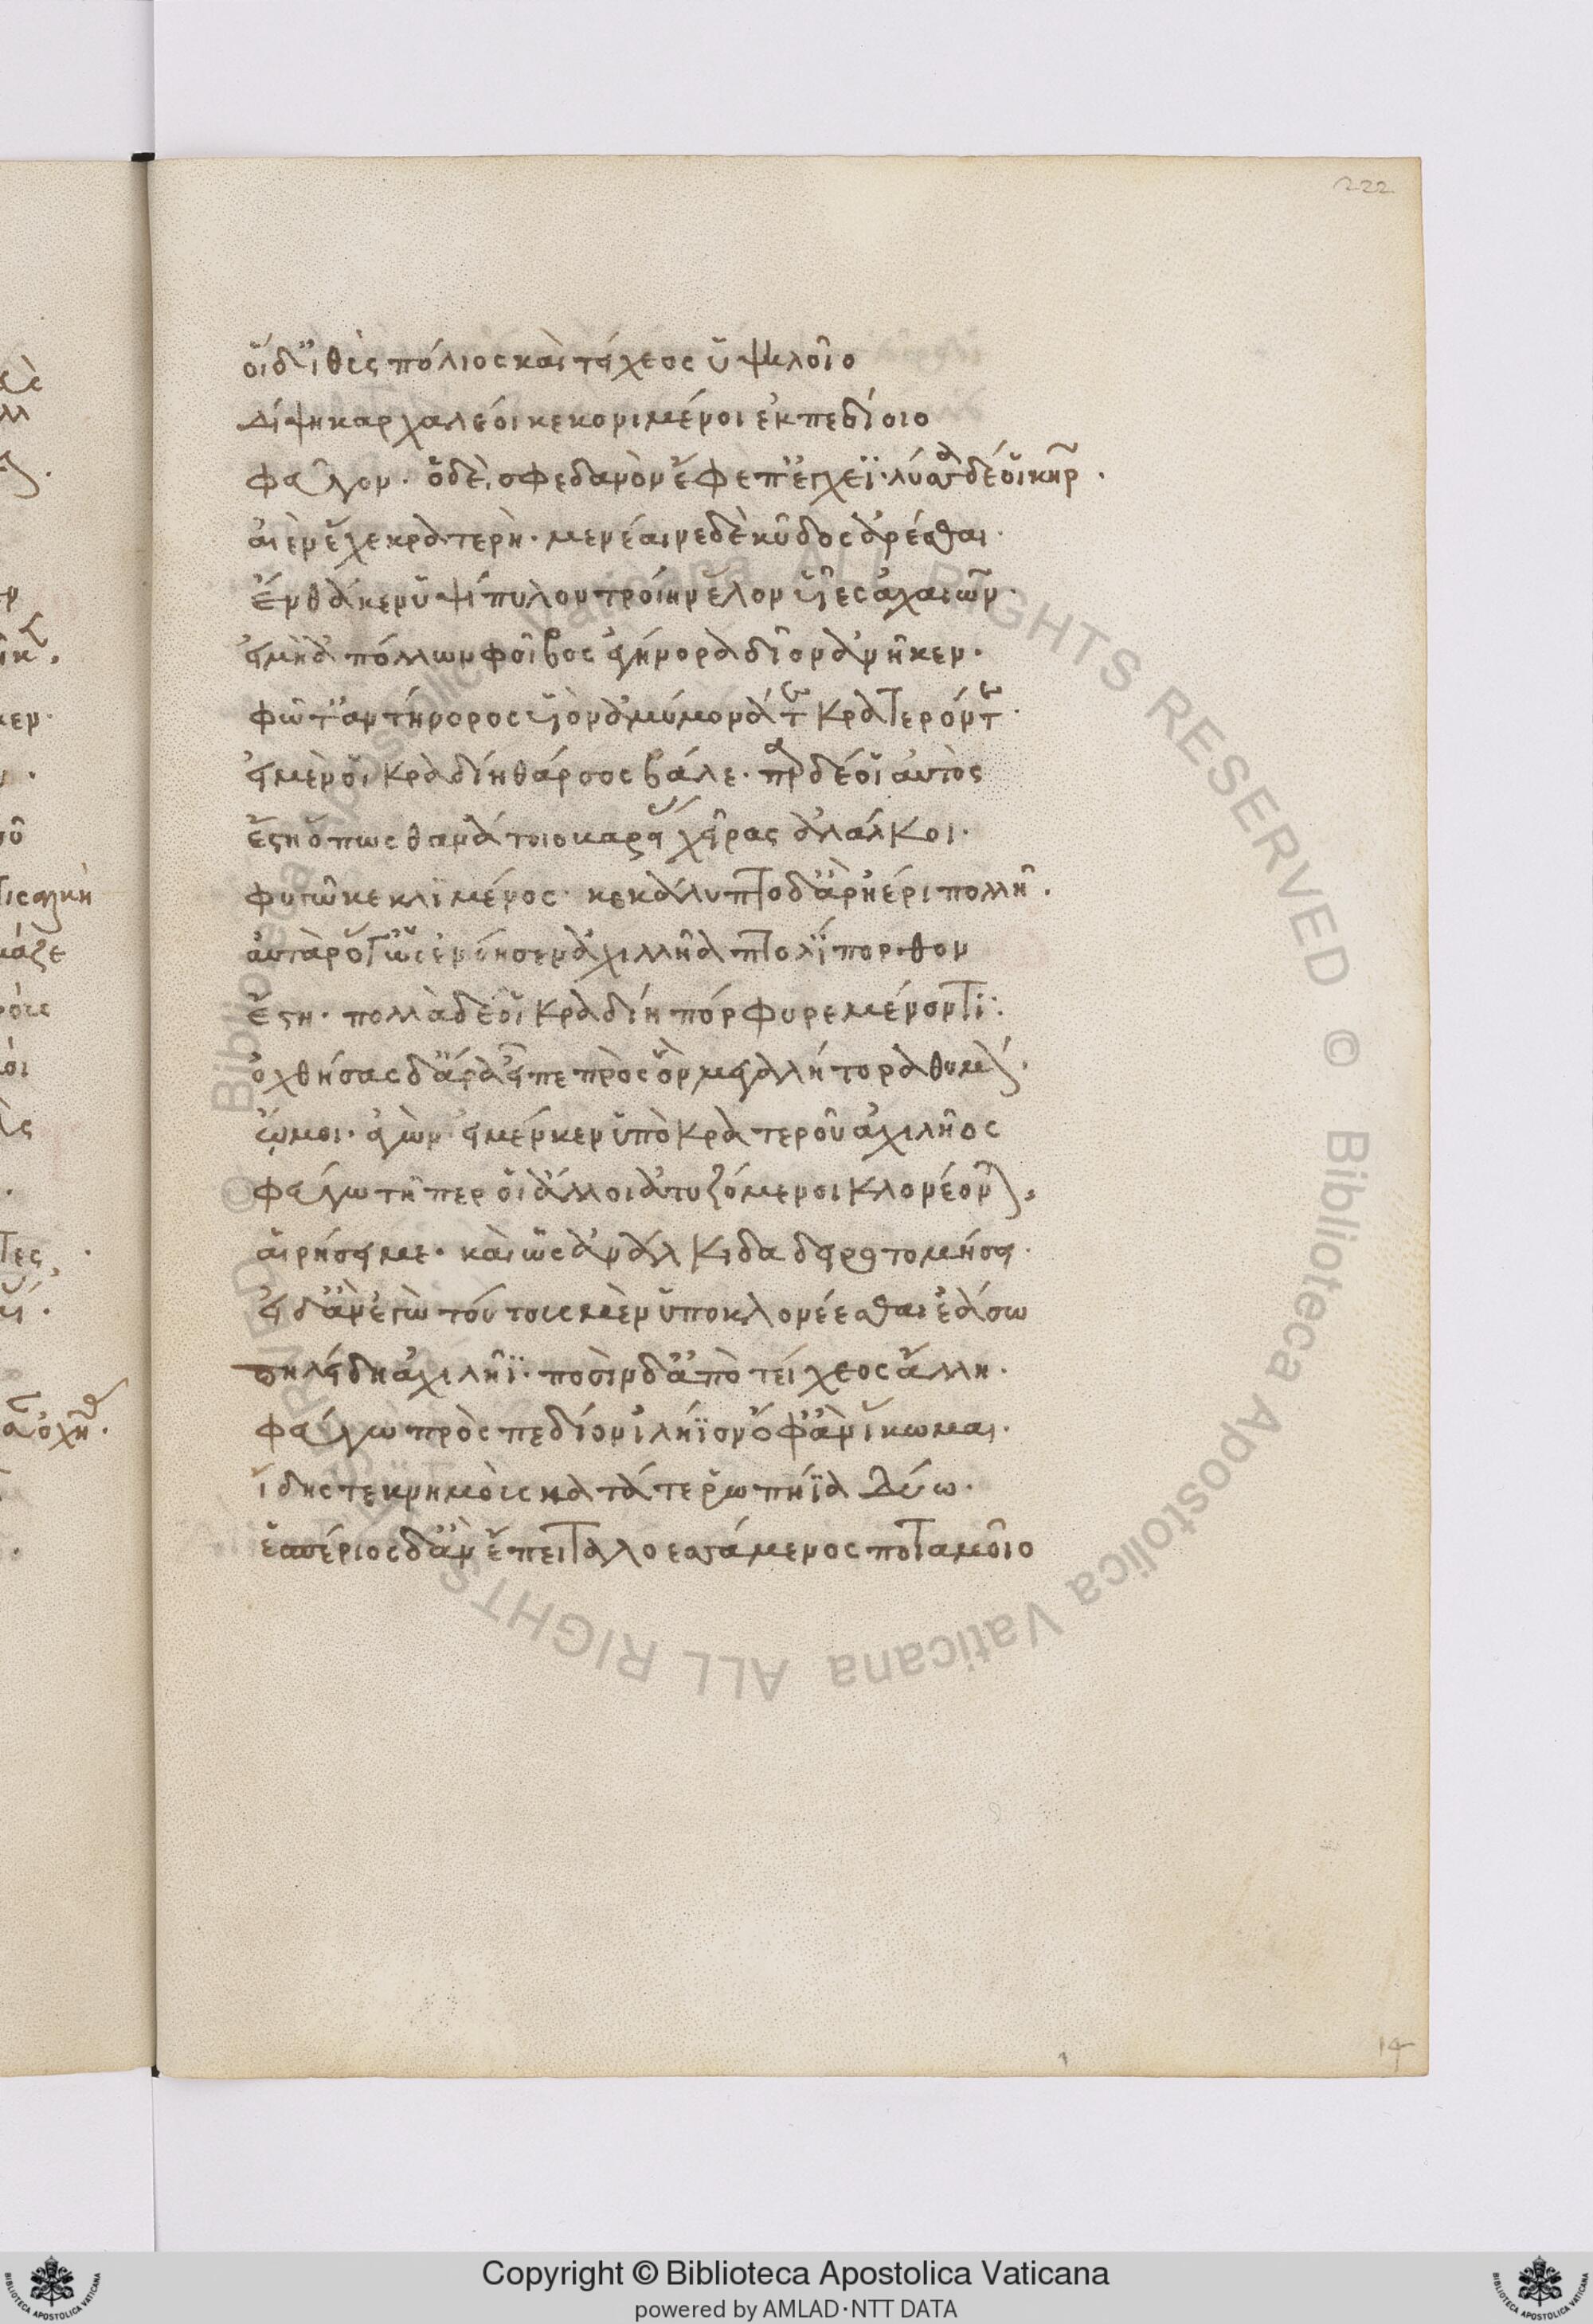 οἵ δ' ἰθὺς πόλιος καὶ τείχεος ὑψηλοῖο
Δίψη καρχαλέοι κεκονιμένοι ἐκ πεδίοιο
φεῦγον· ὁ δὲ σφεδανὸν ἔφεπ' ἔγχεϊ· λύσσα δέ οἱ κῆρ·
αἰὲν ἔχε κρατερή· μενέαινε δὲ κῦδος ἀρέσθαι·
ἔνθά κεν ὑψίπυλον τροίην ἕλον υἷες ἀχαιῶν·
εἰ μὴ ἀπόλλων φοῖβος ἀγήνορα δῖον ἀνῆκεν·
φῶτ' ἀντήνορος υἱὸν ἀμύμονά τε κρατερόν τε·
ἐν μέν οἱ κραδίη θάρσος βάλε· πὰρ δέ οἱ αὐτὸς
ἔστη ὅπως θανάτοιο χεῖρας ἀλάλκοι·
φηγῶ κεκλϊμένος· κεκάλυπτο δ' ἄρ' ἠέρι πολλῆ·
αὐτὰρ ὅγ' ὡς ἐνόησεν ἀχιλλῆα πτολϊπορθον
ἔστη· πολλὰ δέ οἱ κραδίη πόρφυρε μένοντι:
ὀχθήσας δ' ἄρα εἶπε πρὸς ὃν μεγαλήτορα θυμόν·
ὤμοι· ἐγὼν· εἰ μέν κεν ὑπὸ κρατεροῦ ἀχιλῆος
φεύγω τῆ περ οἱ ἄλλοι ἀτυζόμενοι κλονέονται,
αἱρήσει με· καὶ ὡς ἀνάλκιδα δειροτομήσει·
εἰ δ' ἂν ἐγὼ τούτους μὲν ὑποκλονέεσθαι ἐάσω
πηλείδη ἀχιλῆϊ· ποσὶν δ' ἀπὸ τείχεος ἄλλη·
φεύγω πρὸς πεδίον ἰλήϊον ὄφρ' ἂν ἵκωμαι·
ἴδης τε κνημοὺς κατά τε ῥωπήϊα δύω·
ἑσπέριος δ' ἂν ἔπειτα λοεσσάμενος ποταμοῖο
222
14
© Biblioteca Apostolica Vaticana ALL RIGHTS RESERVED
© Biblioteca Apostolica Vaticana ALL RIGHTS RESERVED
Copyright © Biblioteca Apostolica Vaticana
powered by AMLAD·NTT DATA
BIBLIOTECA APOSTOLICA VATICANA
BIBLIOTECA APOSTOLICA VATICANA